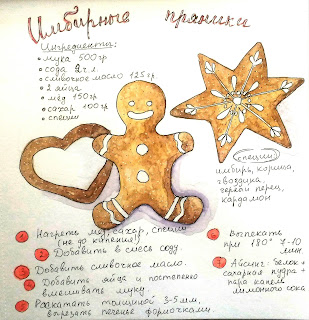 Имбирные пряники
Ингредиенты:
• мука 500гр
• сода 2 ч л
• сливочное масло 125гр
• 2 яйца
• мёд 150гр
• сахар 100гр
• специи
специи
имбирь, корица,
гвоздика,
черный перец,
кардамон
Нагреть мёд, сахар, специи
(не до кипения!)
Добавить в смесь соду.
Добавить сливочное масло.
Добавить яйца и постепенно
вмешивать муку.
Раскатать толщиной 3-5мм,
вырезать печенье формочками
Выпекать
при 180° 7-10
мин.
Айсинг: белок +
сахарная пудра +
пара капель
лимонного сока